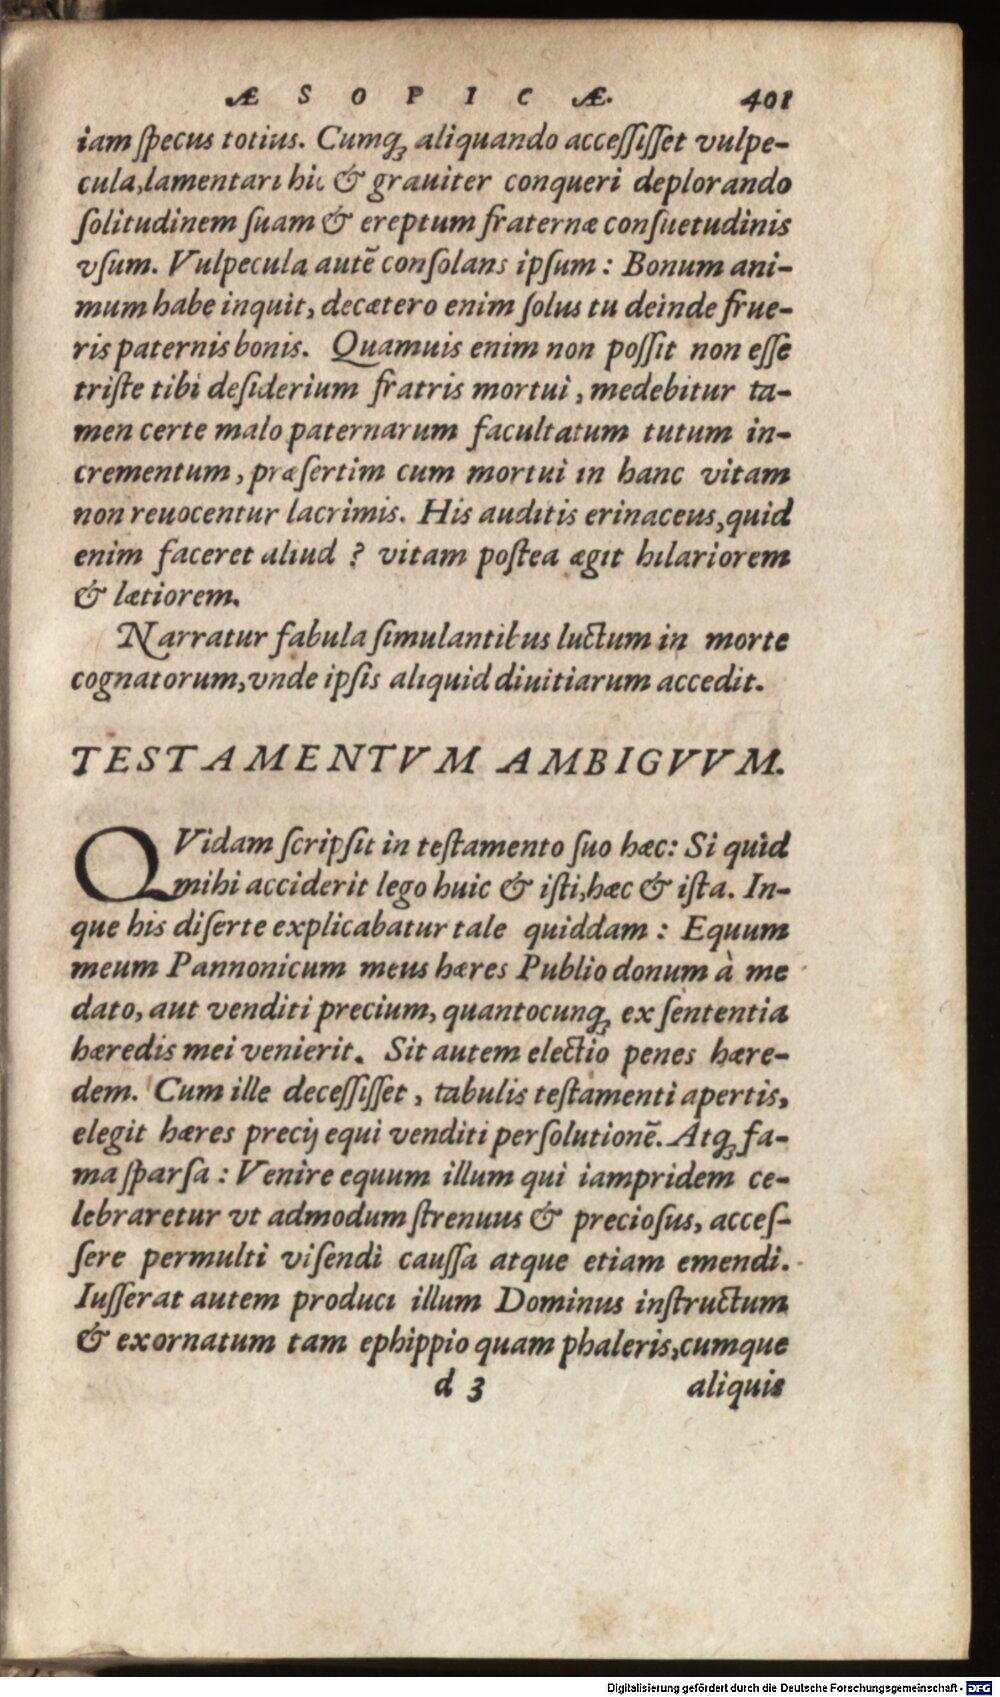 ÆSOPICÆ. 401
iam ſpecus totius. Cumq́ꝫ aliquando acceſſiſſet vulpe-
cula, lamentari hic & grauiter conqueri deplorando
ſolitudinem ſuam & ereptum fraternæ conſuetudinis
vſum. Vulpecula autē conſolans ipſum: Bonum ani-
mum habe inquit, decætero enim ſolus tu deinde frue-
ris paternis bonis. Quamuis enim non poſſit non eſſe
triſte tibi deſiderium fratris mortui, medebitur ta-
men certe malo paternarum facultatum tutum in-
crementum, præſertim cum mortui in hanc vitam
non reuocentur lacrimis. His auditis erinaceus, quid
enim faceret aliud? vitam poſtea ægit hilariorem
& lætiorem.
Narratur fabula ſimulantibus luctum in morte
cognatorum, vnde ipſis aliquid diuitiarum accedit.
TESTAMENTVM AMBIGVVM.
QVidam ſcripſit in teſtamento ſuo hæc: Si quid
mihi acciderit lego huic & iſti, hæc & iſta. In-
que his diſerte explicabatur tale quiddam: Equum
meum Pannonicum meus hæres Publio donum à me
dato, aut venditi precium, quantocunqꝫ ex ſententia
hæredis mei venierit. Sit autem electio penes hære-
dem. Cum ille deceſſiſſet, tabulis teſtamenti apertis,
elegit hæres precij equi venditi perſolutionē. Atqꝫ fa-
ma ſparſa: Venire equum illum qui iampridem ce-
lebraretur vt admodum ſtrenuus & precioſus, acceſ-
ſere permulti viſendi cauſſa atque etiam emendi.
Iuſſerat autem produci illum Dominus inſtructum
& exornatum tam ephippio quam phaleris, cumque
d 3 aliquis
Digitalisierung gefördert durch die Deutsche Forschungsgemeinschaft - DFG